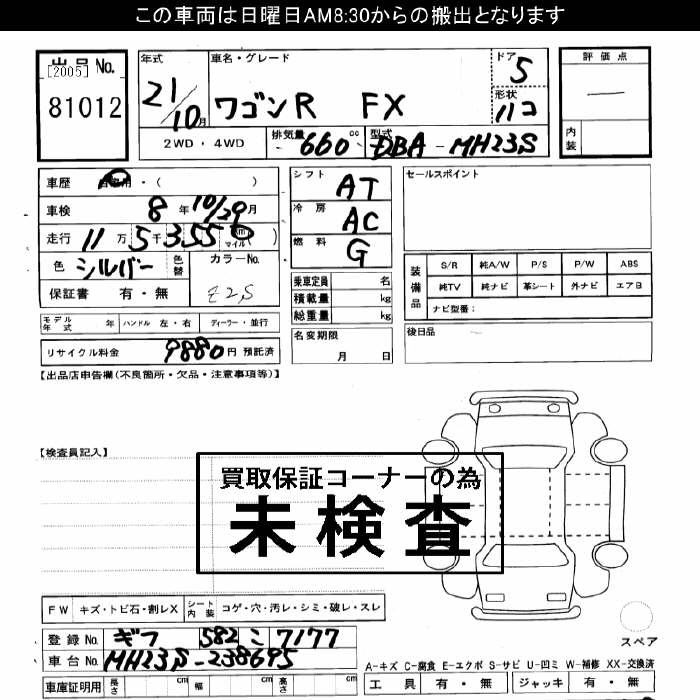 この車両は日曜日AM8:30からの搬出となります
出品No.
[2005]
81012
年式
21/10月
車名・グレード
ワゴンR FX
ドア
5
形状
ハコ
評価点
内装
2WD・4WD
排気量 660cc
型式 DBA-MH23S
車歴 自家用・( )
車検 8年10/29月
走行 11万5千355
km
マイル
色 シルバー
色替
カラーNo.
Z2S
保証書 有・無
シフト AT
冷房 AC
燃料 G
乗車定員 名
積載量 kg
総重量 kg
名変期限
月 日
セールスポイント
装備品
S/R 純A/W P/S P/W ABS
純TV 純ナビ 革シート 外ナビ エアB
ナビ型番:
後日品
モデル年式 年 ハンドル 左・右 ディーラー・並行
リサイクル料金 9880円 預託済
【出品店申告欄(不良箇所・欠品・注意事項等)】
【検査員記入】
買取保証コーナーの為
未検査
FW キズ・トビ石・割レX シート内装 コゲ・穴・汚レ・シミ・破レ・スレ
登録No. ギフ 582 ニ 7177
車台No. MH23S-238695
車庫証明用 長さ cm 幅 cm 高さ cm
スペア
A-キズ C-腐食 E-エクボ S-サビ U-凹ミ W-補修 XX-交換済
工具 有・無 ジャッキ 有・無